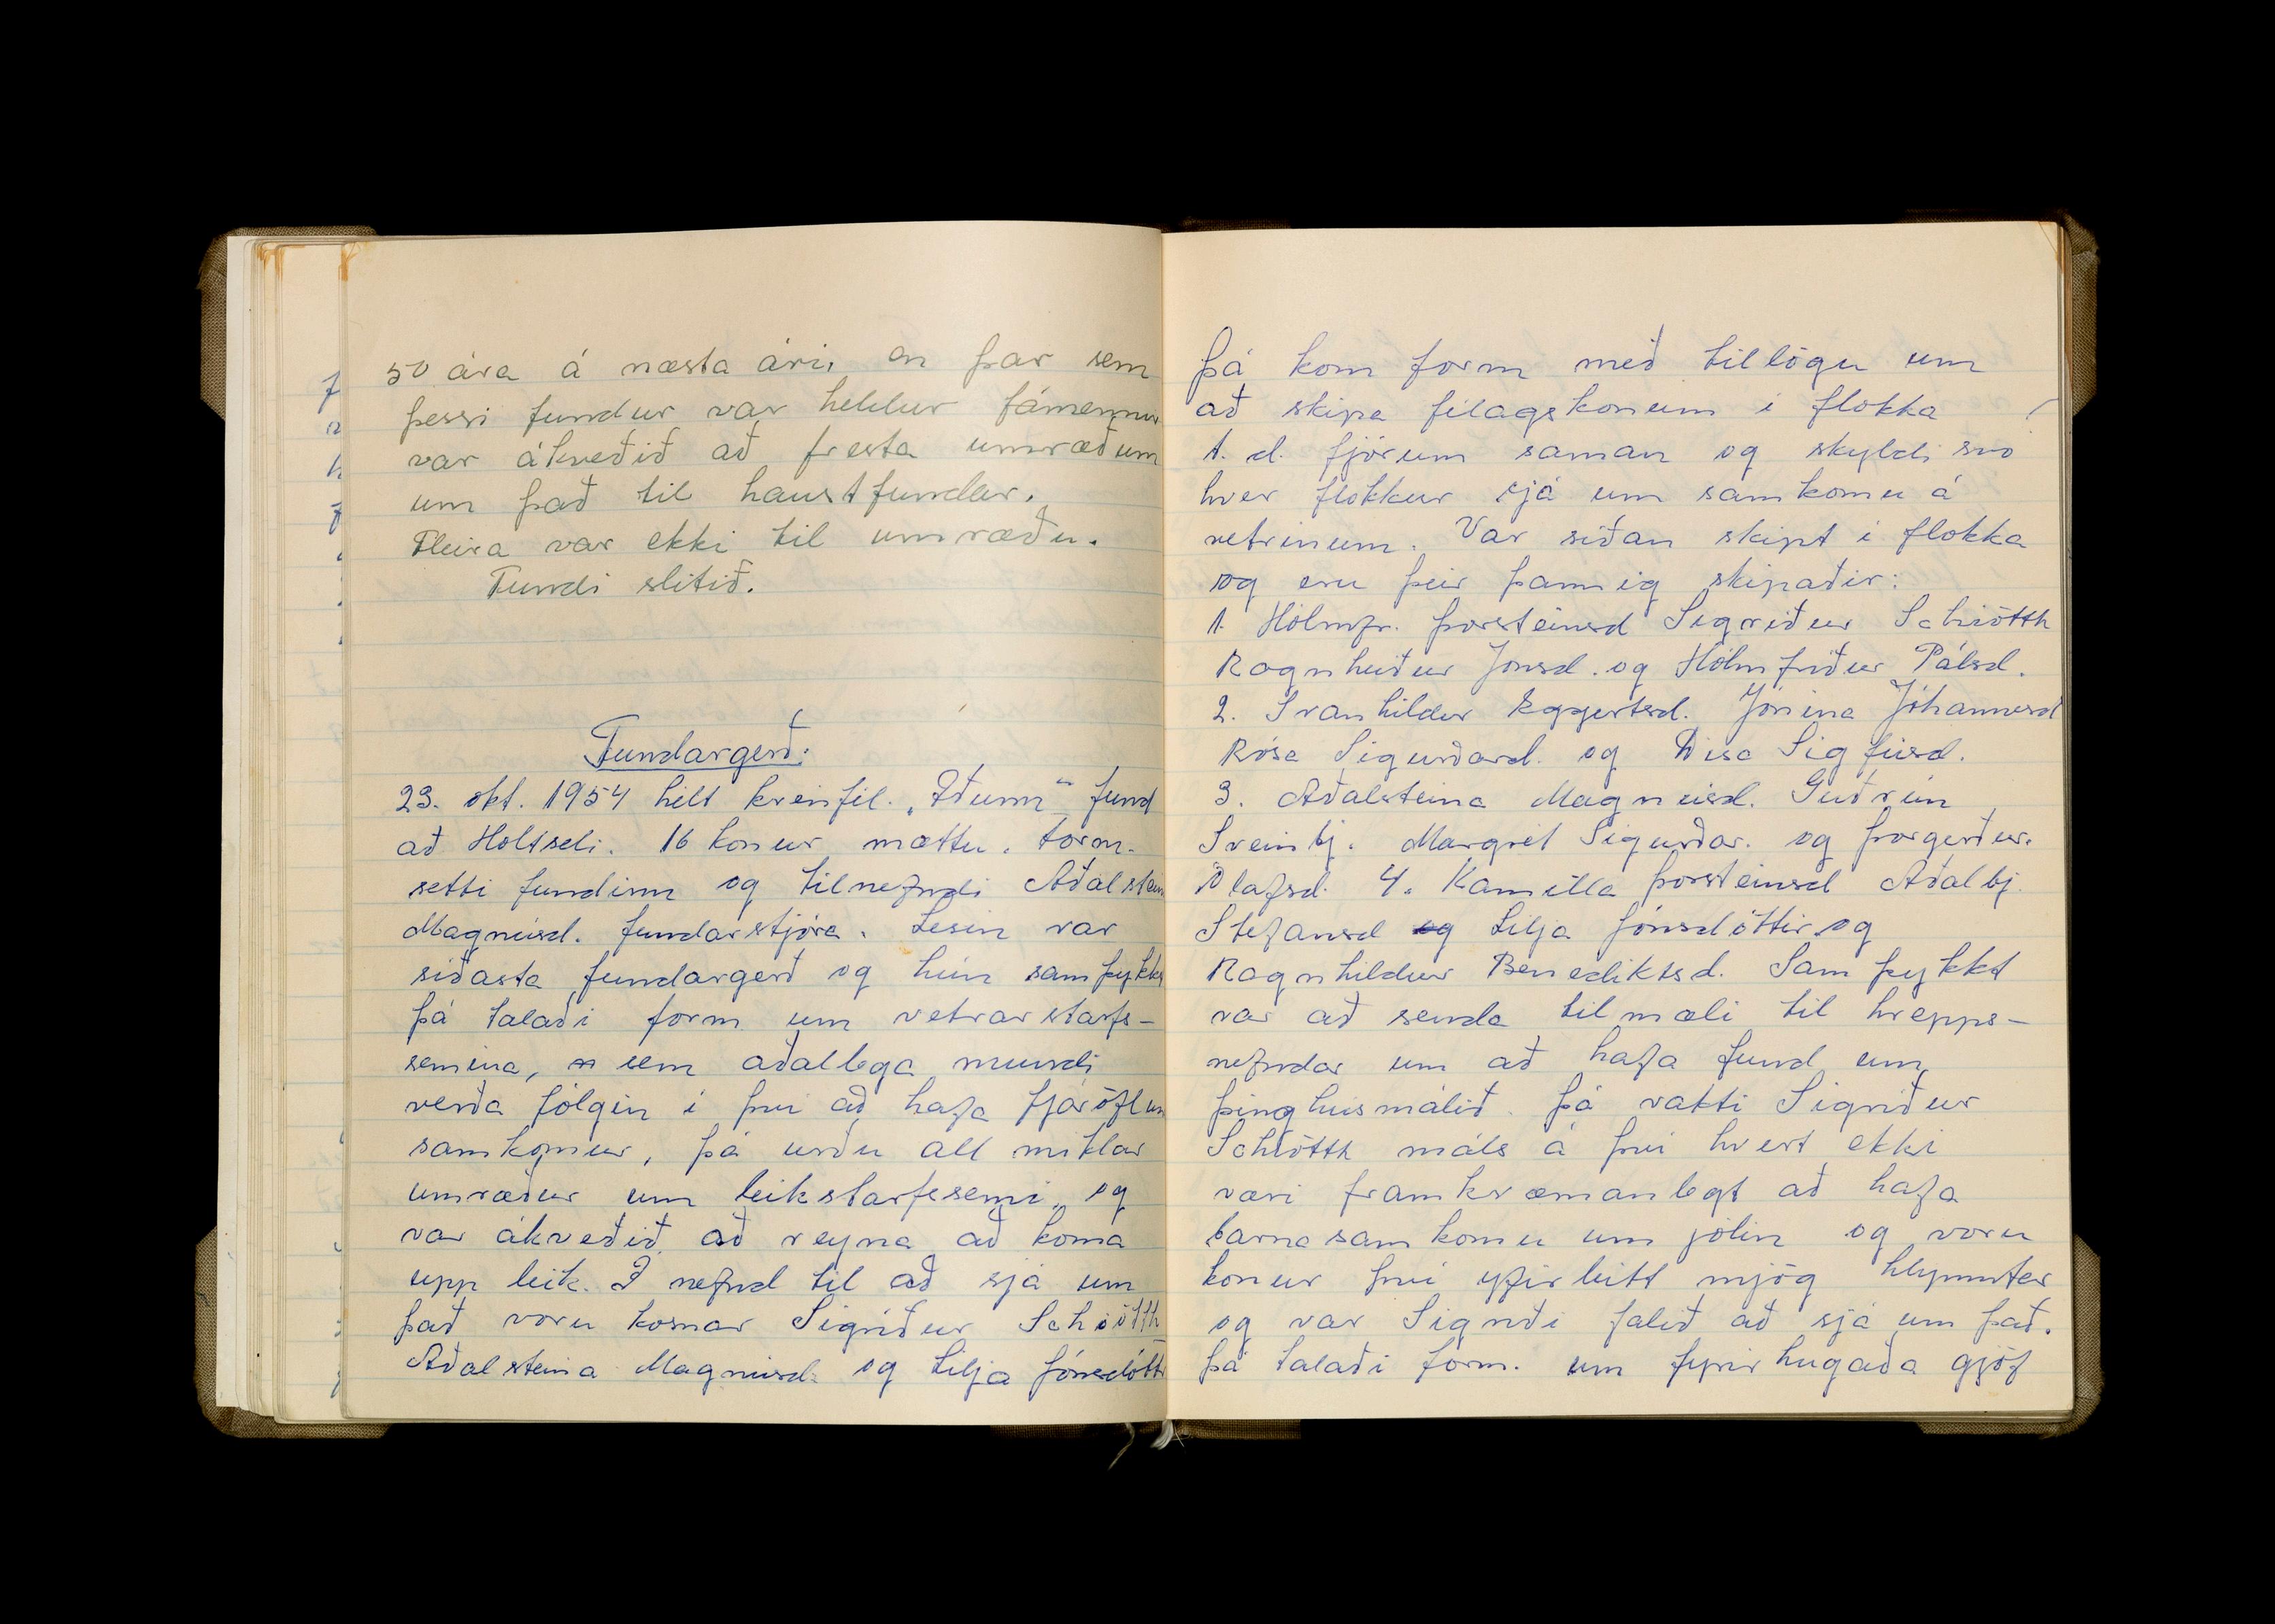 50 ára á næsta ári, en þar sem
þessi fundur var heldur fámennur
var ákveðið að fresta umræðum
um það til haustfundar.
Fleira var ekki til umræðu.
Fundi slitið.
Fundargerð:
23. okt. 1954 hélt kvenfél. „Iðunn" fund
að Holtseli. 16 konur mættu. Form.
setti fundinn og tilnefndi Aðalstein
Magnúsd. fundarstjóra. Lesin var
síðasta fundargerð og hún samþykkt
þá talaði form um vetrarstarfs-
semina, sem aðallega mundi
verða fólgin í því að hafa fjáröflun
samkomur, þá urðu all miklar
umræður um leikstarfsemi, og
var ákveðið að reyna að koma
upp leik. I nefnd til að sjá um
það voru kosnar Sigríður Schiöth
Aðalsteina Magnúsd. og Lilja Jónsdóttir
þá kom form með tillögu um
að skipa félagskonum í flokka
t. d. fjórum saman og skyldi svo
hver flokkur sjá um samkomu á
vetrinum. Var síðan skipt í flokka
og eru þeir þannig skipaðir:
1. Hólmfr. Þorsteinsd Sigríður Schiötth
Ragnheiður Jónsd. og Hólmfríður Pálsd.
2. Svanhildur Eggertsd. Jónína Jóhannesd
Rósa Sigurðard. og Dísa Sigfúsd.
3. Aðalsteina Magnúsd. Guðrún
Sveinbj. Margrét Sigurðar. og Þorgerður.
Olafsd. 4. Kamilla Þorsteinsd Aðalbj.
Stefansd og Lilja Jónsdóttir og
Ragnhildur Benediktsd. Samþykkt
var að senda tilmæli til hrepps-
nefndar um að hafa fund um
þinghúsmálið. Þá vakti Sigríður
Schiötth máls á því hvert ekki
væri framkvæmanlegt að hafa
barnasamkomu um jólin og voru
konur því yfirleitt mjög hlynntar
og var Sigríði falið að sjá um það.
Þá talaði form. um fyrirhugaða gjöf